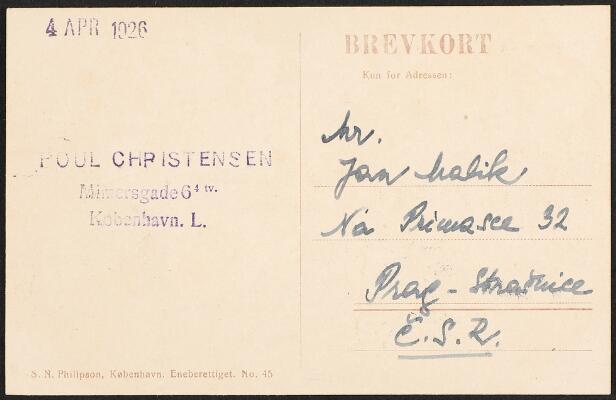 4 APR 1926
BREVKORT
Kun for Adressen:
POUL CHRISTENSEN
Mimersgade 6⁴ tv.
København. L.
Mr.
Jan Malik
Na Primasce 32
Prag - Strašnice
Č.S.R.
S. N. Philipson, København. Eneberettiget. No. 45